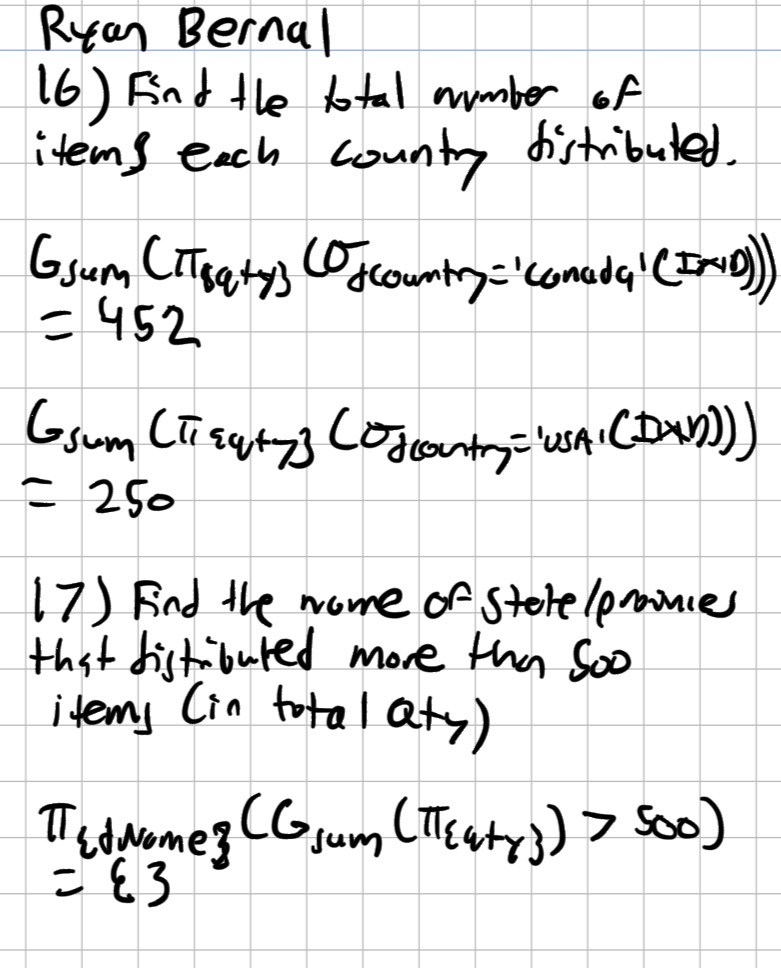 Ryan Bernal
16) Find the total number of
items each country distributed.
G sum (π{qty} (σdcountry='Canada' (I⋈D)))
= 452
G sum (π{qty} (σdcountry='USA' (I⋈D)))
= 250
17) Find the name of state/provinces
that distributed more than 500
items (in total Qty)
π{dName} (G sum (π{qty}) > 500)
= {}